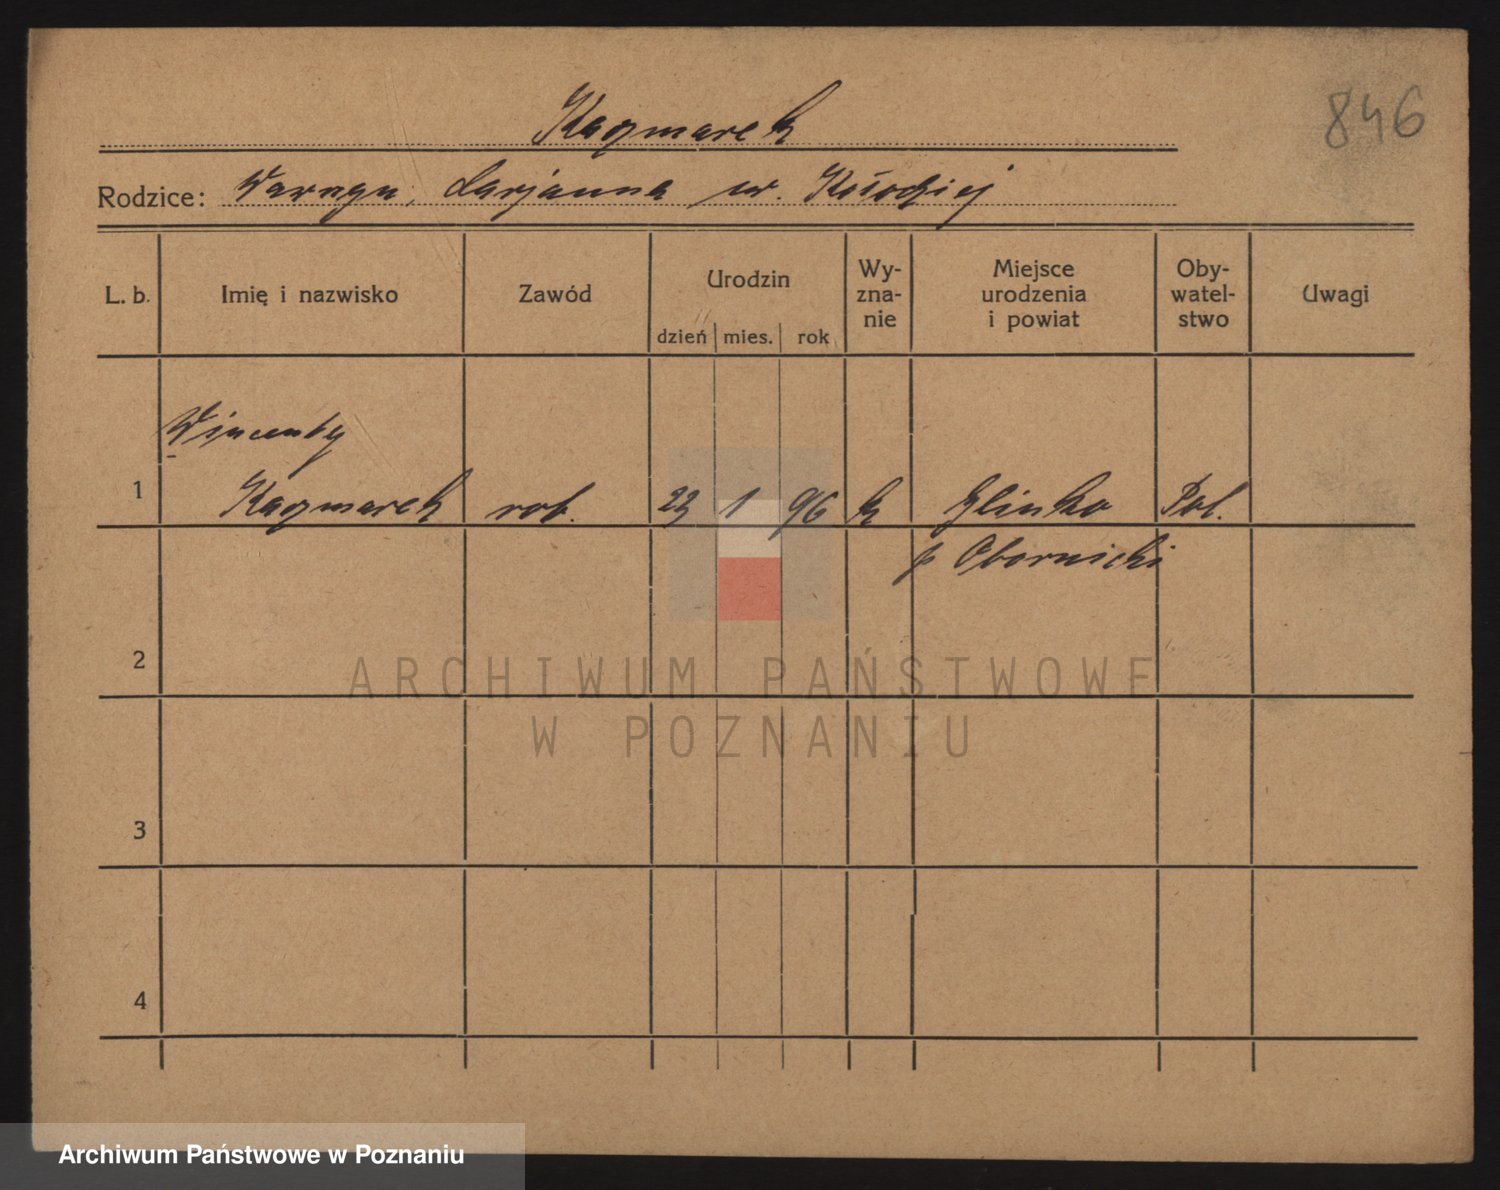 846
Kaczmarek
Rodzice: Wawrzyn, Marjanna ur. Kołodziej
L. b. Imię i nazwisko Zawód Urodzin dzień mies. rok Wy-zna-nie Miejsce urodzenia i powiat Oby-watel-stwo Uwagi
Wincenty
1 Kaczmarek rob. 23 1 96 k Glinko Pol.
p Obornicki
2
ARCHIWUM PAŃSTWOWE
W POZNANIU
3
4
Archiwum Państwowe w Poznaniu